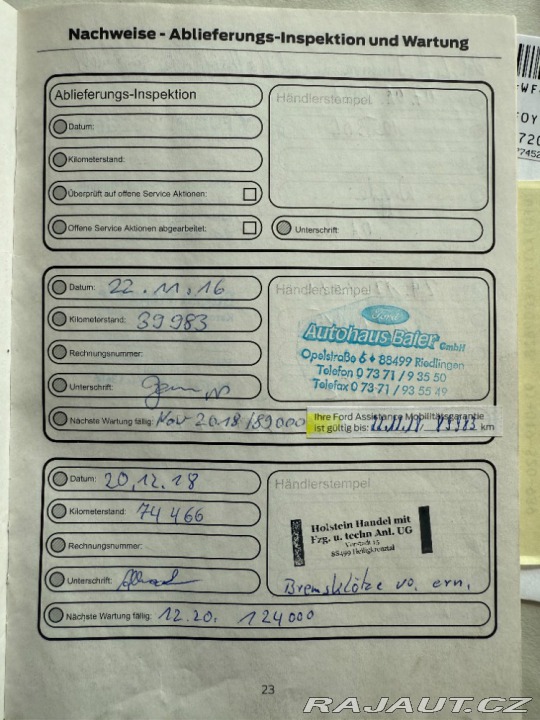 Nachweise - Ablieferungs-Inspektion und Wartung
Ablieferungs-Inspektion
Händlerstempel
Datum:
Kilometerstand:
Überprüft auf offene Service Aktionen:
Offene Service Aktionen abgearbeitet:
Unterschrift
Datum: 22.11.16
Händlerstempel
Kilometerstand: 39983
Ford
Autohaus Baier GmbH
Rechnungsnummer:
Opelstraße 6 • 88499 Riedlingen
Telefon 0 73 71 / 9 35 50
Telefax 0 73 71 / 93 55 49
Unterschrift:
Nächste Wartung fällig: Nov 2018/89000
Ihre Ford Assistance Mobilitätsgarantie
ist gültig bis: 22.11.18 / 89983 km
Datum: 20.12.18
Händlerstempel
Kilometerstand: 74466
Holstein Handel mit
Fzg. u. techn Anl. UG
Rechnungsnummer:
88499 Heiligkreuztal
Unterschrift:
Bremsklötze vo. ern.
Nächste Wartung fällig: 12.20. 124000
23
RAJAUT.CZ